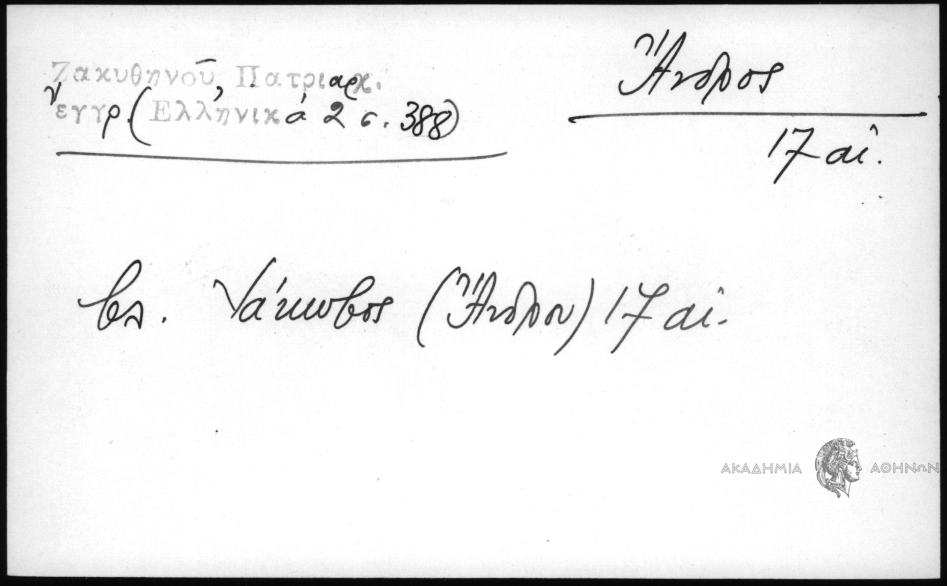 Ζακυθηνοῦ, Πατριαρχ.
ἔγγρ. (Ἑλληνικά 2 σ. 388)
Ἄνδρος
17 αἰ.
βλ. Ἰάκωβος (Ἄνδρου) 17 αἰ.
ΑΚΑΔΗΜΙΑ ΑΘΗΝΩΝ